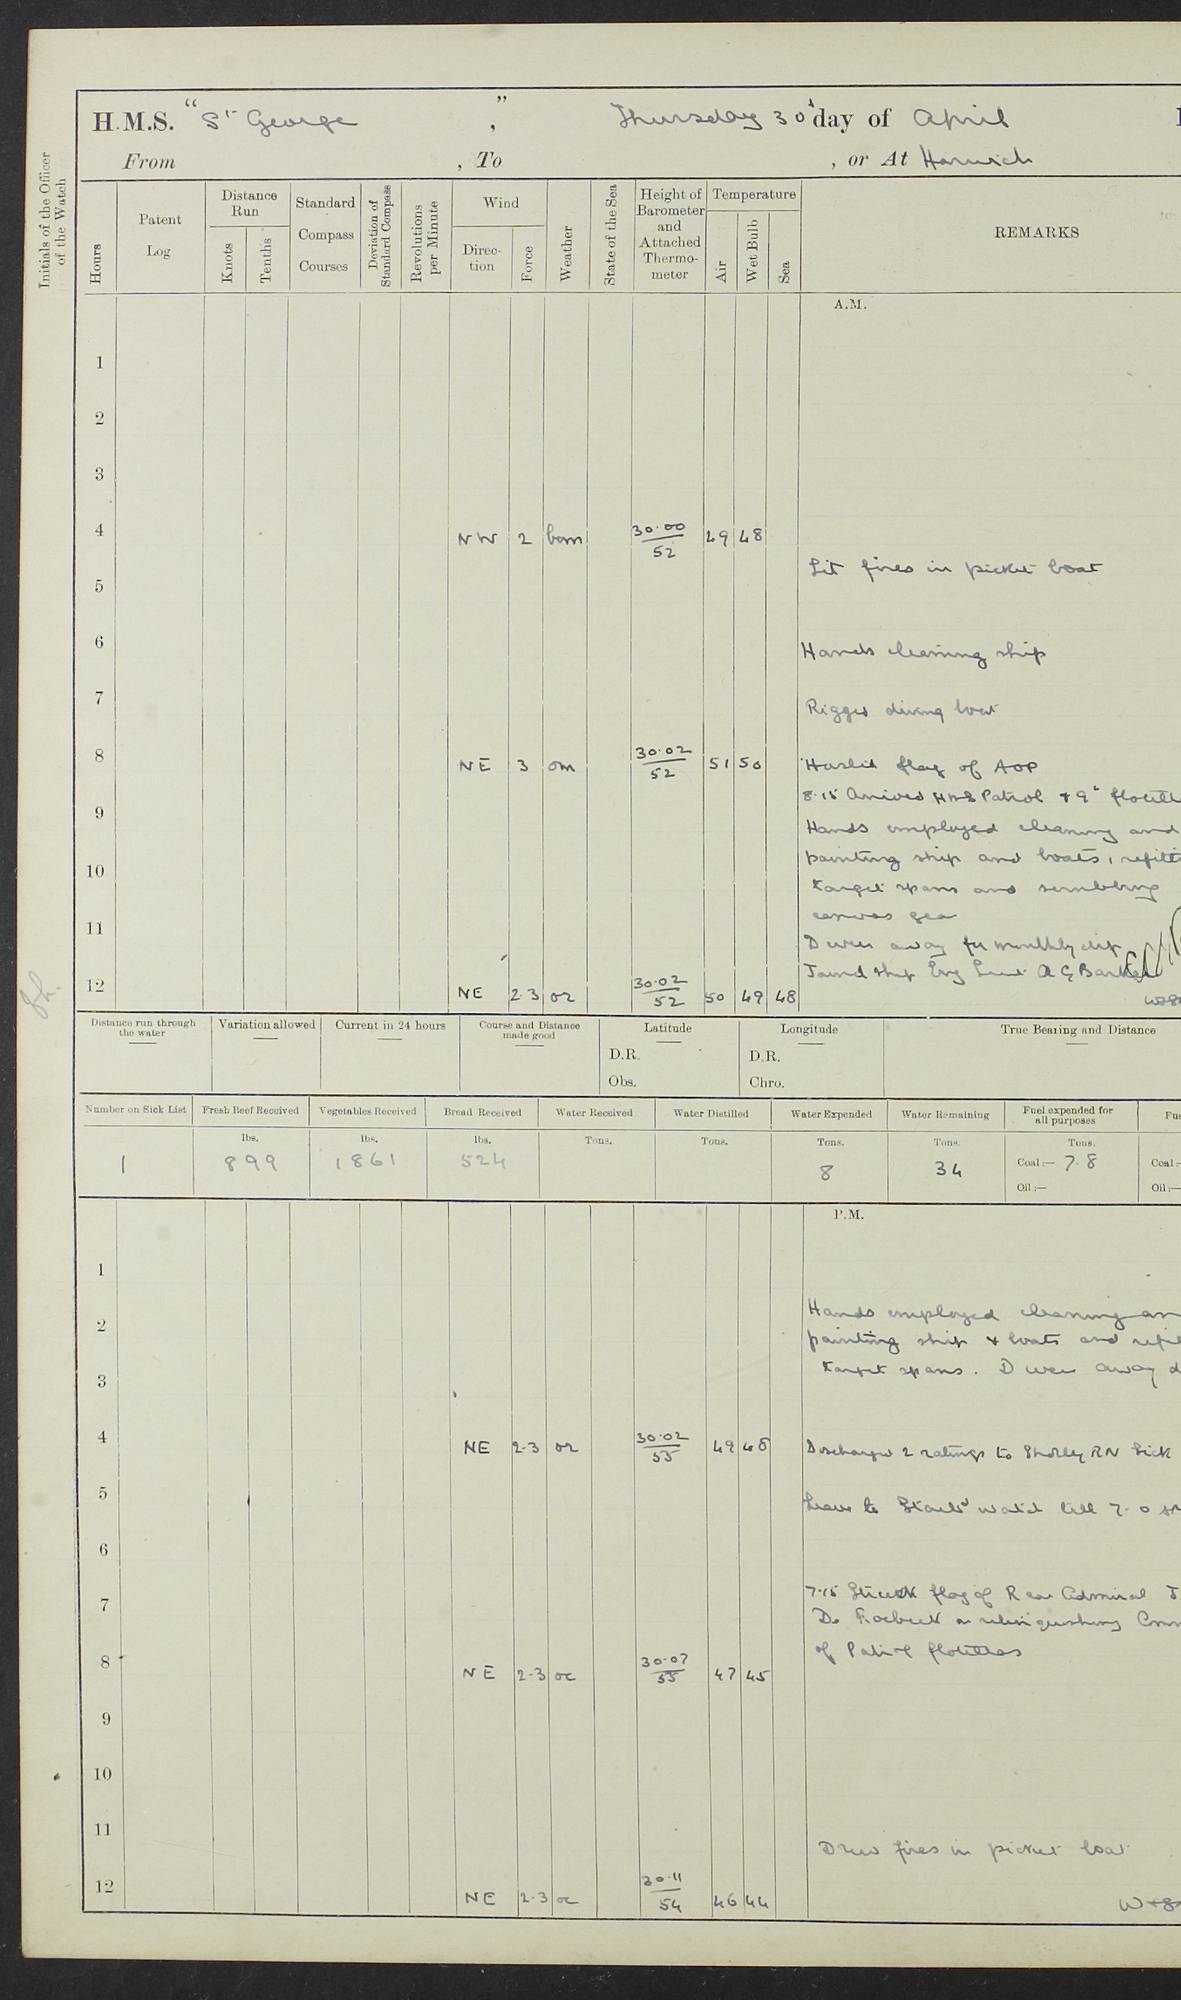 H.M.S. "St George", Thursday 30th day of April
From , To , or At Harwich
Initials of the Officer of the Watch
Hours
Patent Log
Distance Run
Knots
Tenths
Standard Compass Courses
Deviation of Standard Compass
Revolutions per Minute
Wind
Direction
Force
Weather
State of the Sea
Height of Barometer and Attached Thermometer
Temperature
Air
Wet Bulb
Sea
REMARKS
A.M.
1
2
3
4 NW 2 bcm 30.00 / 52 49 48
Lit fires in picket boat
5
6
Hands cleaning ship
7
Rigged diving boat
8 NE 3 om 30.02 / 52 51 50 flag of AOP
8.15 Arrived HMS Patrol + 9th
9
Hands employed cleaning and
painting ship and boats,
10
target spars and scrubbing
canvas gear
11
Divers away for monthly dip
Joined ship Eng Lieut A G Barker
12 NE 2.3 or 30.02 / 52 50 49 48
Distance run through the water
Variation allowed
Current in 24 hours
Course and Distance made good
Latitude
D.R.
Obs.
Longitude
D.R.
Chro.
True Bearing and Distance
Number on Sick List
Fresh Beef Received
Vegetables Received
Bread Received
Water Received
Water Distilled
Water Expended
Water Remaining
Fuel expended for all purposes
lbs. lbs. lbs. Tons. Tons. Tons. Tons. Tons.
1 899 1861 524 8 34 Coal:— 7.8 Coal:—
Oil:— Oil:—
P.M.
1
Hands employed cleaning
2
painting ship + boats and
3
target spars. Divers away
4 NE 2.3 or 30.02 / 55 49 48 Discharged 2 ratings to Shotley RN Sick
5
Leave to Starbd watch till 7.0
6
7.15 Struck flag of Rear Admiral J
7
De Robeck on relinquishing
of Patrol flotillas
8 NE 2.3 oc 30.07 / 55 47 45
9
10
11
Drew fires in picket boat
12 NE 2.3 oc 30.11 / 54 46 44